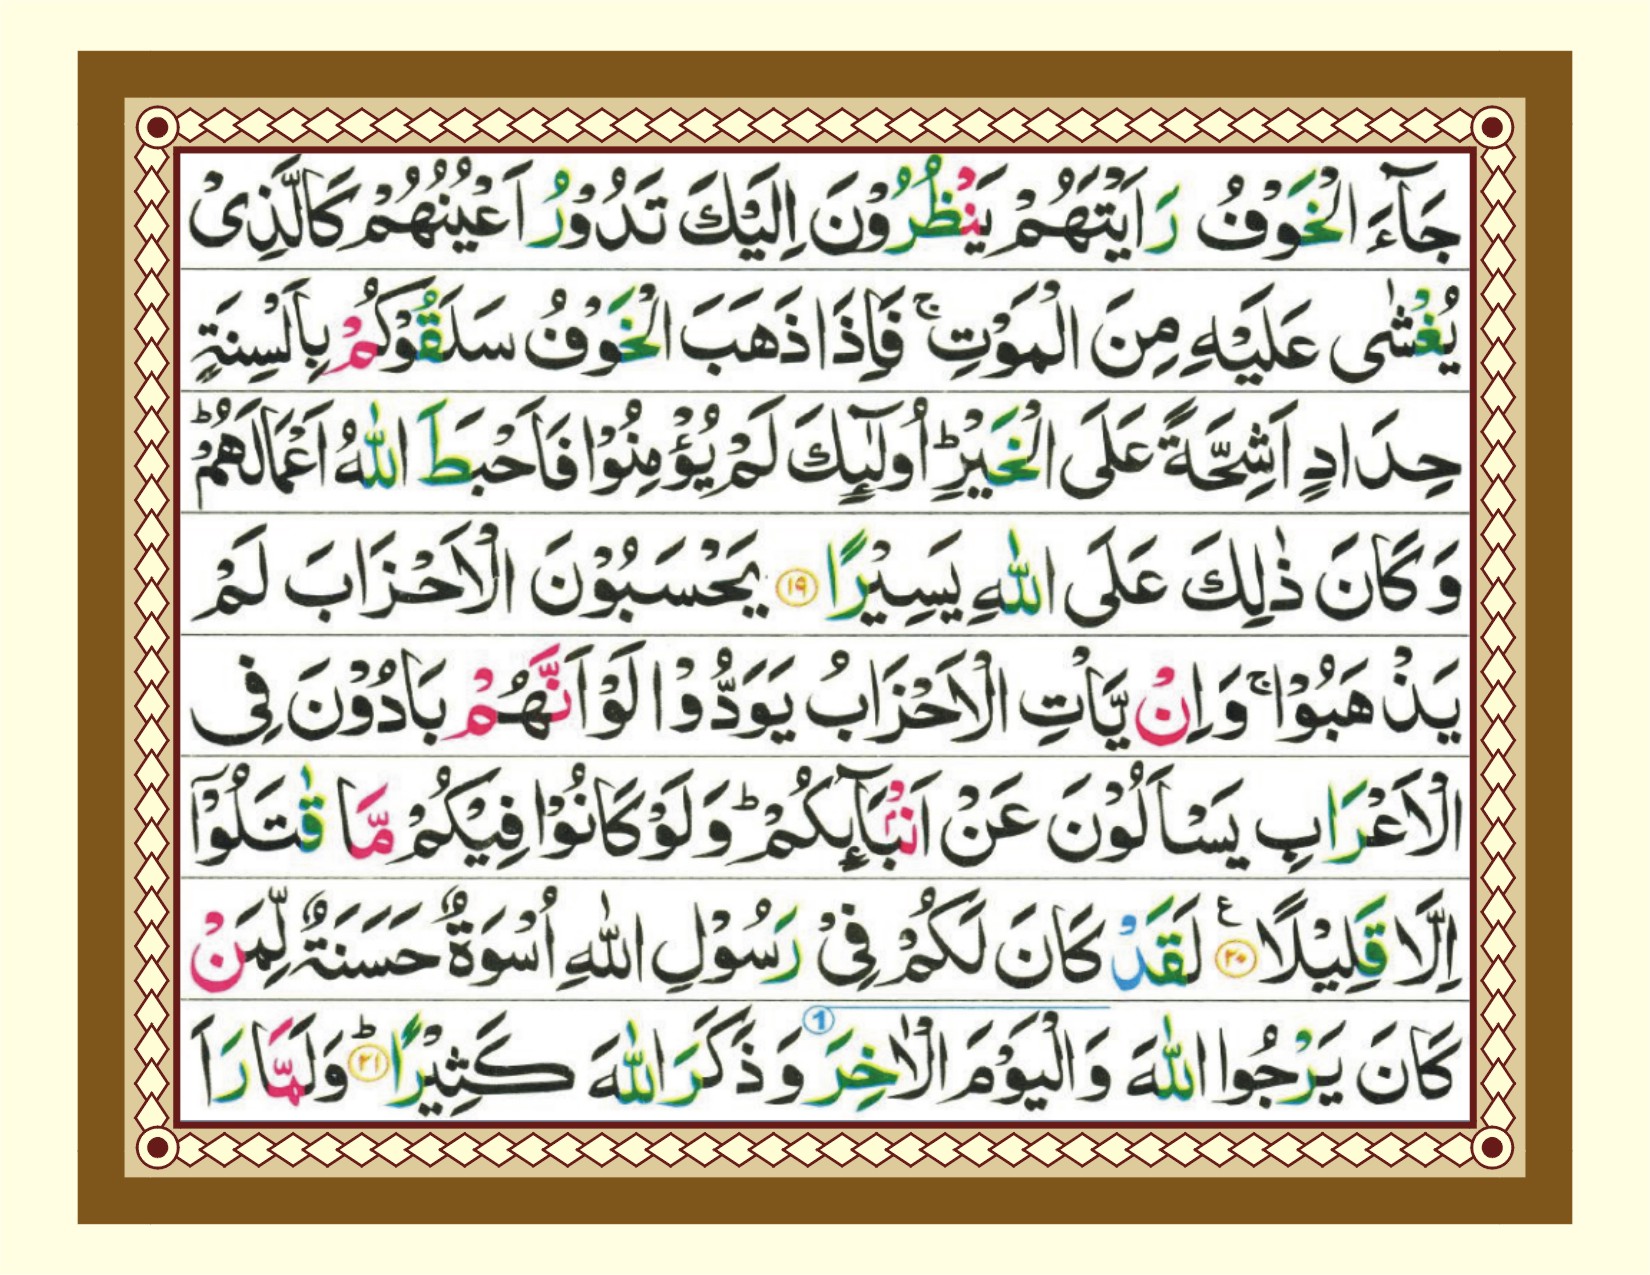 جَآءَ الْخَوْفُ رَاَيْتَهُمْ يَنْظُرُوْنَ اِلَيْكَ تَدُوْرُ اَعْيُنُهُمْ كَالَّذِىْ
يُغْشٰى عَلَيْهِ مِنَ الْمَوْتِ ۚ فَاِذَا ذَهَبَ الْخَوْفُ سَلَقُوْكُمْ بِاَلْسِنَةٍ
حِدَادٍ اَشِحَّةً عَلَى الْخَيْرِ ؕ اُولٰٓئِكَ لَمْ يُؤْمِنُوْا فَاَحْبَطَ اللّٰهُ اَعْمَالَهُمْ ؕ
وَكَانَ ذٰلِكَ عَلَى اللّٰهِ يَسِيْرًا ﴿۱۹﴾ يَحْسَبُوْنَ الْاَحْزَابَ لَمْ
يَذْهَبُوْا ۚ وَاِنْ يَّاْتِ الْاَحْزَابُ يَوَدُّوْا لَوْ اَنَّهُمْ بَادُوْنَ فِى
الْاَعْرَابِ يَسْاَلُوْنَ عَنْ اَنْۢبَآئِكُمْ ؕ وَلَوْ كَانُوْا فِيْكُمْ مَّا قٰتَلُوْۤا
اِلَّا قَلِيْلًا ﴿۲۰﴾ ع لَقَدْ كَانَ لَكُمْ فِىْ رَسُوْلِ اللّٰهِ اُسْوَةٌ حَسَنَةٌ لِّمَنْ
كَانَ يَرْجُوا اللّٰهَ وَالْيَوْمَ الْاٰخِرَ 1 وَذَكَرَ اللّٰهَ كَثِيْرًا ؕ﴿۲۱﴾ وَلَمَّا رَاَ